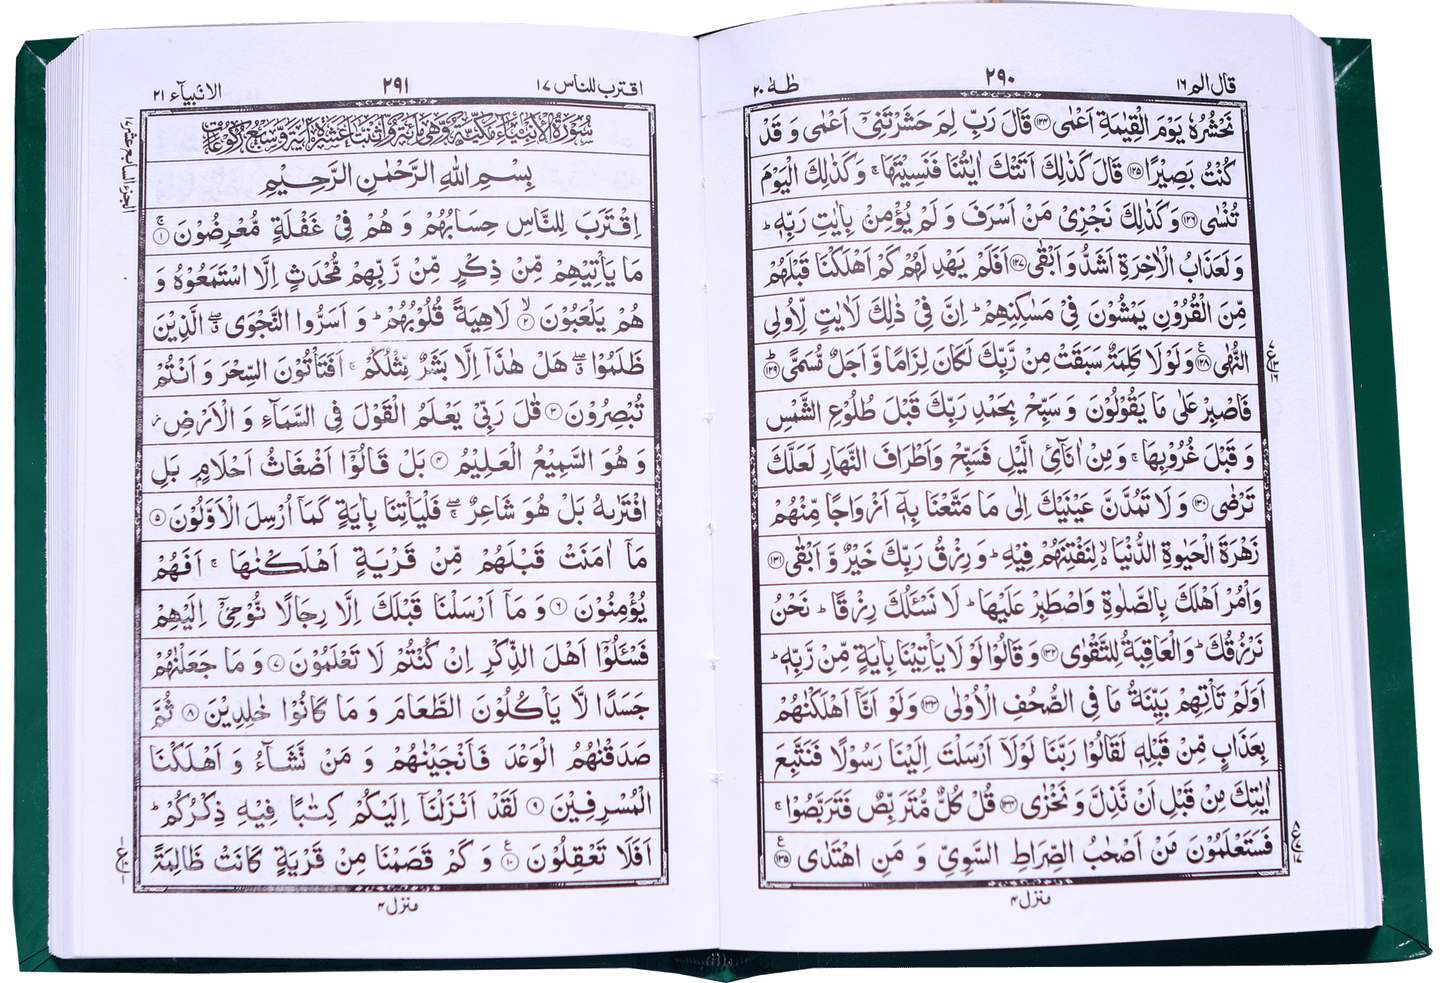 قال الم ۱۶
۲۹۰
طٰهٰ ۲۰
نَحْشُرُهٗ يَوْمَ الْقِيٰمَةِ اَعْمٰى ۱۲۴ قَالَ رَبِّ لِمَ حَشَرْتَنِيْۤ اَعْمٰى وَ قَدْ
كُنْتُ بَصِيْرًا ۱۲۵ قَالَ كَذٰلِكَ اَتَتْكَ اٰيٰتُنَا فَنَسِيْتَهَا ۚ وَكَذٰلِكَ الْيَوْمَ
تُنْسٰى ۱۲۶ وَ كَذٰلِكَ نَجْزِيْ مَنْ اَسْرَفَ وَ لَمْ يُؤْمِنْۢ بِاٰيٰتِ رَبِّهٖ ؕ
وَ لَعَذَابُ الْاٰخِرَةِ اَشَدُّ وَ اَبْقٰى ۱۲۷ اَفَلَمْ يَهْدِ لَهُمْ كَمْ اَهْلَكْنَا قَبْلَهُمْ
مِّنَ الْقُرُوْنِ يَمْشُوْنَ فِيْ مَسٰكِنِهِمْ ؕ اِنَّ فِيْ ذٰلِكَ لَاٰيٰتٍ لِّاُولِي
النُّهٰى ۱۲۸ ع وَ لَوْ لَا كَلِمَةٌ سَبَقَتْ مِنْ رَّبِّكَ لَكَانَ لِزَامًا وَّ اَجَلٌ مُّسَمًّى ۱۲۹ ط
فَاصْبِرْ عَلٰى مَا يَقُوْلُوْنَ وَ سَبِّحْ بِحَمْدِ رَبِّكَ قَبْلَ طُلُوْعِ الشَّمْسِ
وَ قَبْلَ غُرُوْبِهَا ۚ وَ مِنْ اٰنَآئِ الَّيْلِ فَسَبِّحْ وَاَطْرَافَ النَّهَارِ لَعَلَّكَ
تَرْضٰى ۱۳۰ وَ لَا تَمُدَّنَّ عَيْنَيْكَ اِلٰى مَا مَتَّعْنَا بِهٖۤ اَزْوَاجًا مِّنْهُمْ
زَهْرَةَ الْحَيٰوةِ الدُّنْيَا ۙ لِنَفْتِنَهُمْ فِيْهِ ؕ وَ رِزْقُ رَبِّكَ خَيْرٌ وَّ اَبْقٰى ۱۳۱
وَاْمُرْ اَهْلَكَ بِالصَّلٰوةِ وَاصْطَبِرْ عَلَيْهَا ؕ لَا نَسْـَٔلُكَ رِزْقًا ؕ نَحْنُ
نَرْزُقُكَ ؕ وَالْعَاقِبَةُ لِلتَّقْوٰى ۱۳۲ وَ قَالُوْا لَوْ لَا يَاْتِيْنَا بِاٰيَةٍ مِّنْ رَّبِّهٖ ؕ
اَوَلَمْ تَاْتِهِمْ بَيِّنَةُ مَا فِي الصُّحُفِ الْاُوْلٰى ۱۳۳ وَلَوْ اَنَّاۤ اَهْلَكْنٰهُمْ
بِعَذَابٍ مِّنْ قَبْلِهٖ لَقَالُوْا رَبَّنَا لَوْلَاۤ اَرْسَلْتَ اِلَيْنَا رَسُوْلًا فَنَتَّبِعَ
اٰيٰتِكَ مِنْ قَبْلِ اَنْ نَّذِلَّ وَ نَخْزٰى ۱۳۴ قُلْ كُلٌّ مُّتَرَبِّصٌ فَتَرَبَّصُوْا ۚ
فَسَتَعْلَمُوْنَ مَنْ اَصْحٰبُ الصِّرَاطِ السَّوِيِّ وَ مَنِ اهْتَدٰى ۱۳۵ ع
منزل ۴
اقترب للناس ۱۷
۲۹۱
الانبيآء ۲۱
الجزء السابع عشر ۱۷
بِسْمِ اللّٰهِ الرَّحْمٰنِ الرَّحِيْمِ
اِقْتَرَبَ لِلنَّاسِ حِسَابُهُمْ وَ هُمْ فِيْ غَفْلَةٍ مُّعْرِضُوْنَ ۱ ۚ
مَا يَاْتِيْهِمْ مِّنْ ذِكْرٍ مِّنْ رَّبِّهِمْ مُّحْدَثٍ اِلَّا اسْتَمَعُوْهُ وَ
هُمْ يَلْعَبُوْنَ ۲ ۙ لَاهِيَةً قُلُوْبُهُمْ ؕ وَ اَسَرُّوا النَّجْوَى ۖ ق الَّذِيْنَ
ظَلَمُوْا ۖ ق هَلْ هٰذَاۤ اِلَّا بَشَرٌ مِّثْلُكُمْ ۚ اَفَتَاْتُوْنَ السِّحْرَ وَ اَنْتُمْ
تُبْصِرُوْنَ ۳ قٰلَ رَبِّيْ يَعْلَمُ الْقَوْلَ فِي السَّمَآءِ وَ الْاَرْضِ ؗ
وَ هُوَ السَّمِيْعُ الْعَلِيْمُ ۴ بَلْ قَالُوْۤا اَضْغَاثُ اَحْلَامٍۭ بَلِ
افْتَرٰىهُ بَلْ هُوَ شَاعِرٌ ۖ ۚ فَلْيَاْتِنَا بِاٰيَةٍ كَمَاۤ اُرْسِلَ الْاَوَّلُوْنَ ۵
مَاۤ اٰمَنَتْ قَبْلَهُمْ مِّنْ قَرْيَةٍ اَهْلَكْنٰهَا ۚ اَفَهُمْ
يُؤْمِنُوْنَ ۶ وَ مَاۤ اَرْسَلْنَا قَبْلَكَ اِلَّا رِجَالًا نُّوْحِيْۤ اِلَيْهِمْ
فَسْـَٔلُوْۤا اَهْلَ الذِّكْرِ اِنْ كُنْتُمْ لَا تَعْلَمُوْنَ ۷ وَ مَا جَعَلْنٰهُمْ
جَسَدًا لَّا يَاْكُلُوْنَ الطَّعَامَ وَ مَا كَانُوْا خٰلِدِيْنَ ۸ ثُمَّ
صَدَقْنٰهُمُ الْوَعْدَ فَاَنْجَيْنٰهُمْ وَ مَنْ نَّشَآءُ وَ اَهْلَكْنَا
الْمُسْرِفِيْنَ ۹ لَقَدْ اَنْزَلْنَاۤ اِلَيْكُمْ كِتٰبًا فِيْهِ ذِكْرُكُمْ ؕ
اَفَلَا تَعْقِلُوْنَ ۱۰ ع وَ كَمْ قَصَمْنَا مِنْ قَرْيَةٍ كَانَتْ ظَالِمَةً
منزل ۴